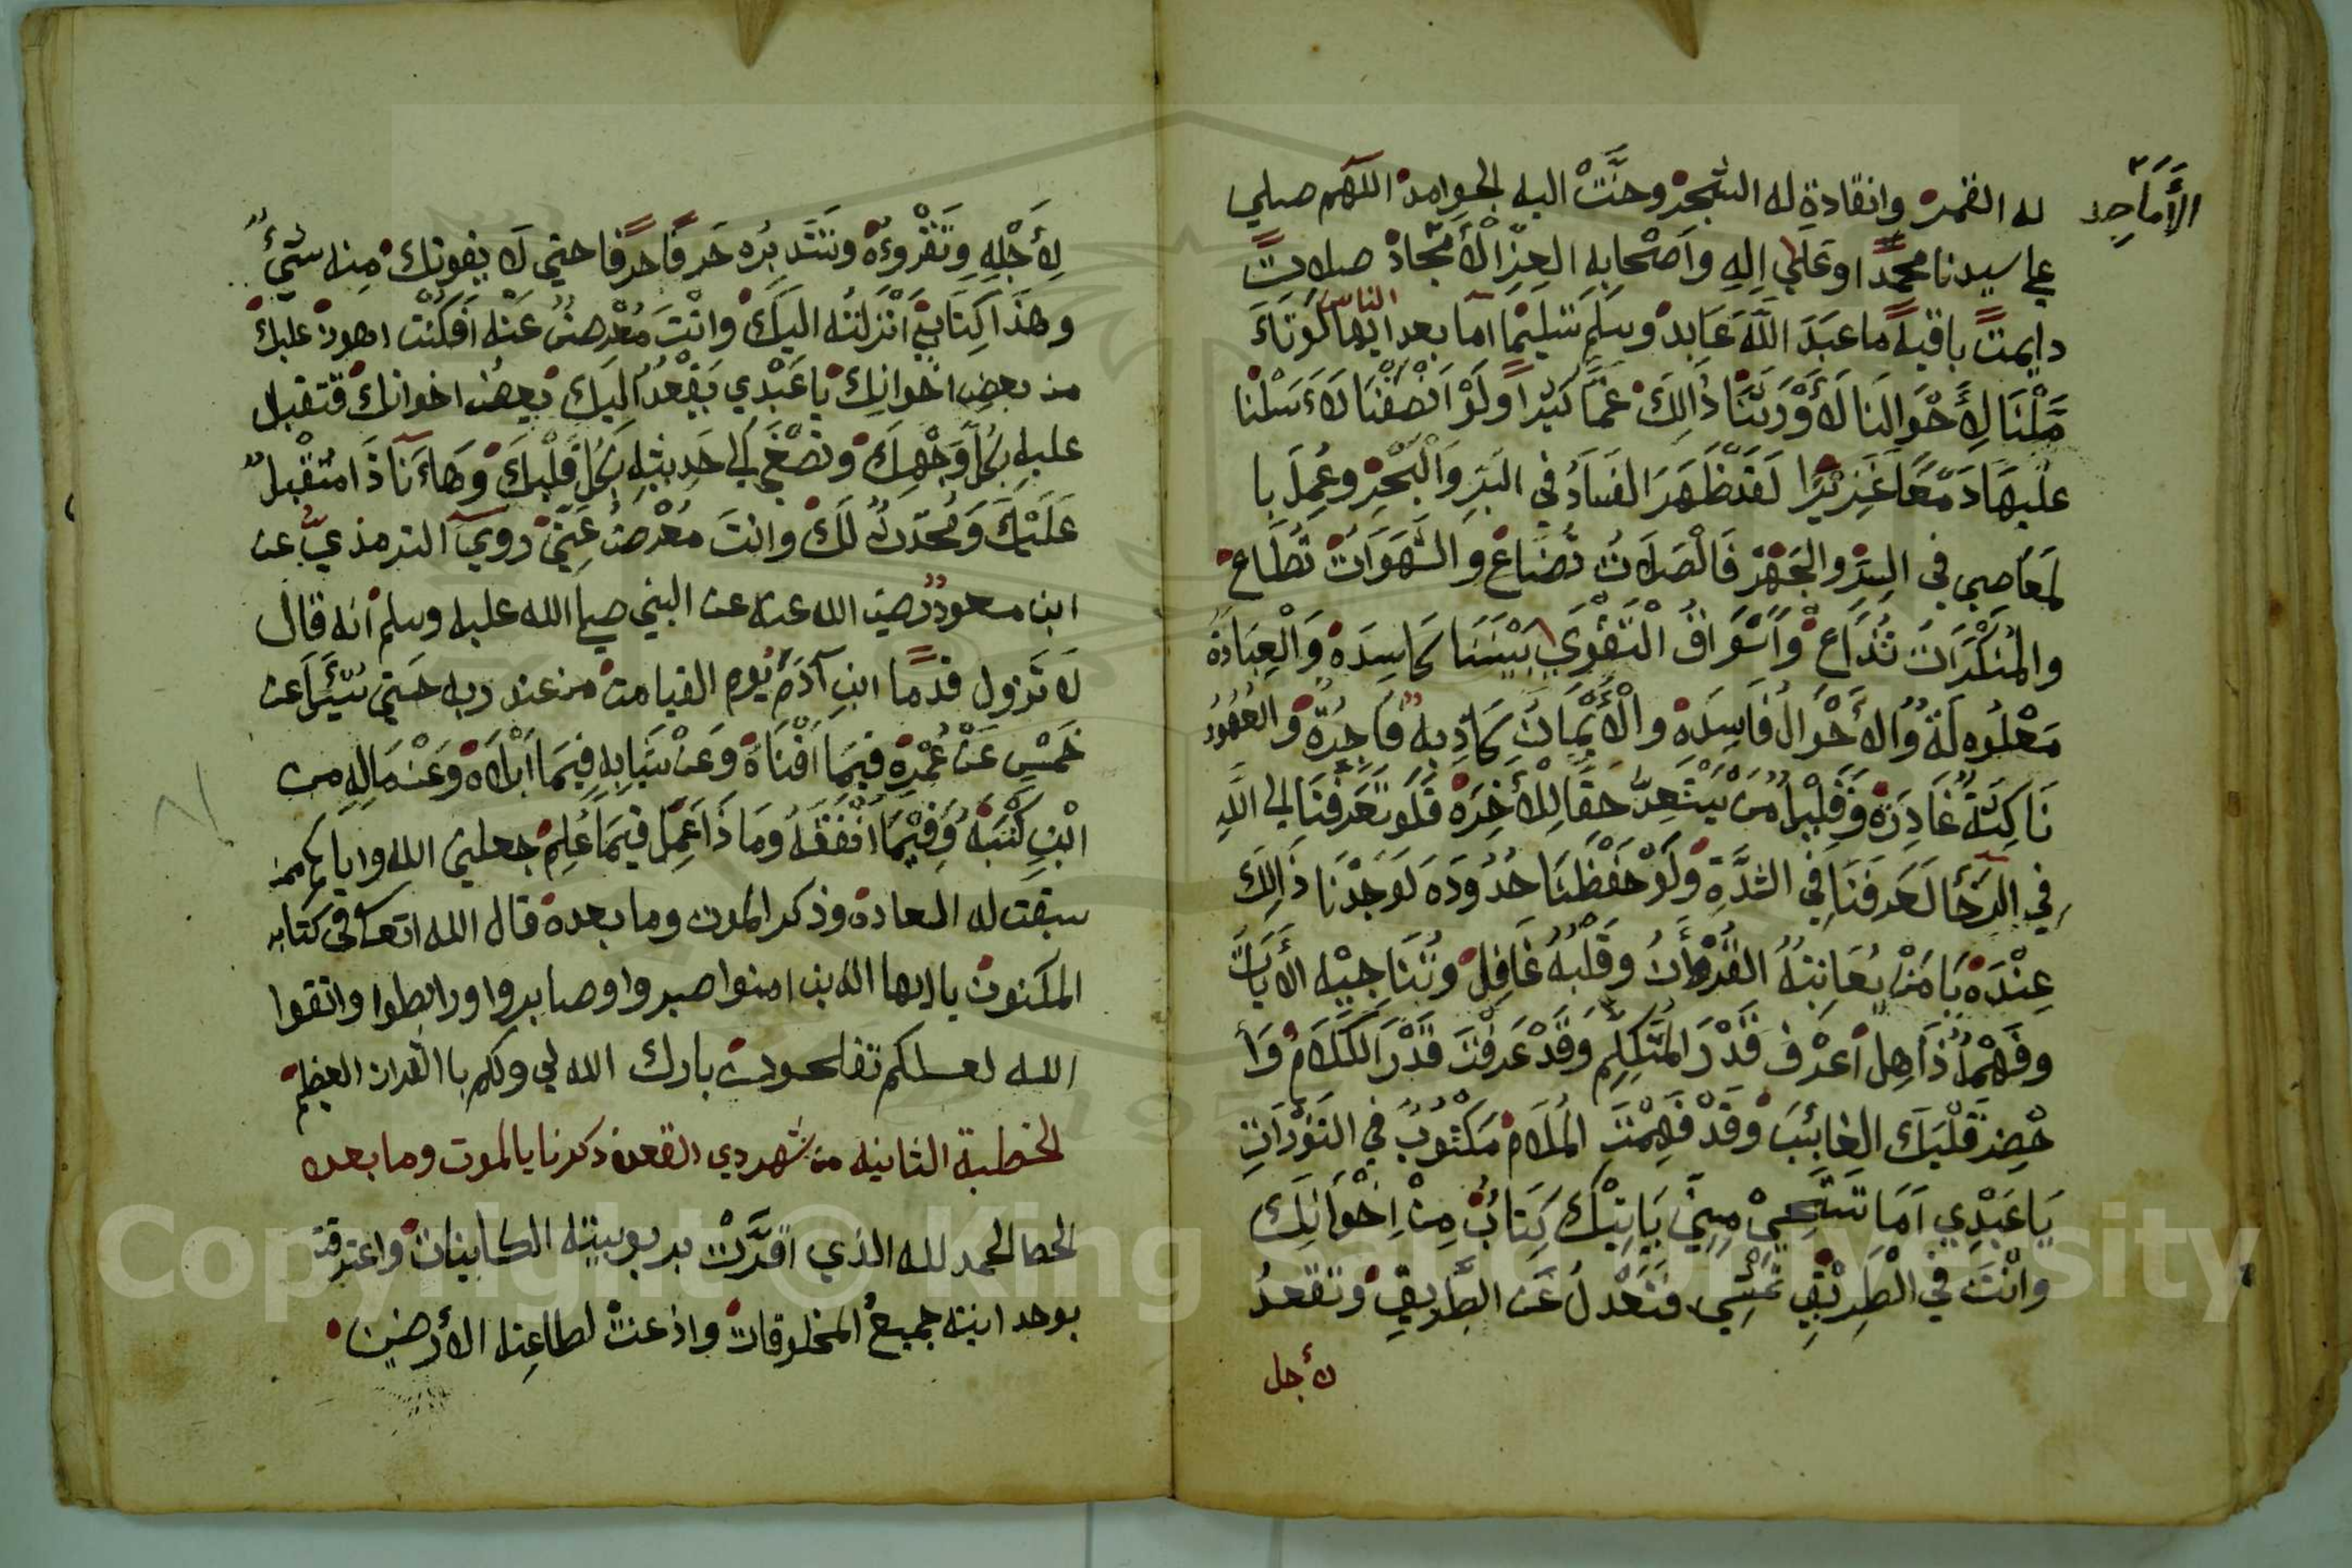 الأماجد
له القمر وانقادة له الشجر وحنت اليه الجوامد اللهم صلي
علي سيدنا محمدا وعلي اله واصحابه العز الأمجاد صلات
دايمت باقية ما عبد الله عابد وسلم تسليما اما بعد ايها الناس لو تاء
ملنا لأحوالنا لأورثنا ذالك غما كبيرا ولو انصفنا لاءسلنا
عليها دمعا غزيرا لقد ظهر الفساد في البر والبحر وعمل با
لمعاصي في السر والجهر فالصلات تضاع والشهوات تطاع
والمنكرات تذاع وأسواق التقوي بيننا كاسدة والعبادة
معلوله والأحوال فاسدة والأيمان كاذبة فاجرة والعهود
ناكثة غادرة وقليلا من يستعد حقا للأخرة فلو تعرفنا الي الله
في الرخا لعرفنا في الشدة ولو حفظنا حدوده لوجدنا ذالك
عنده يا من يعاتبه القرءان وقلبه غافل وتناجيه الأيات
وفهمه ذاهل اعرف قدر المتكلم وقد عرفت قدر الكلام وا
حضر قلبك الغائب وقد فهمت الملام مكتوب في التورات
يا عبدي اما تستحي مني ياتيك كتاب من اخوانك
وانت في الطريق تمشي فتعدل عن الطريق وتقعد
لأجل
لأجله وتقروءه وتتدبره حرفا حرفا حتي لا يفوتك منه شيء
وهذا كتابي انزلته اليك وانت معرض عنه افكنت اهون عليك
من بعض اخوانك يا عبدي يقعد اليك بعض اخوانك فتقبل
عليه بكل وجهك وتصغي الي حديثه بكل قلبك وهاءنا ذا مقبل
عليك ومحدث لك وانت معرض عني روي الترمذي عن
ابن مسعود رضي الله عنه عن النبي صلي الله عليه وسلم انه قال
لا تزول قدما ابن آدم يوم القيامت من عند ربه حتي يسأل عن
خمس عن عمره فيما افناه وعن شبابه فيما ابلاه وعن ماله من
اين كتسبه وفيما انفقه وماذا عمل فيما علم جعلني الله واياكم ممن
سبقت له السعادة وذكر الموت وما بعده قال الله تعالى في كتابه
المكنون يا ايها الذين امنوا صبروا وصابروا ورابطوا واتقوا
الله لعلكم تفلحون بارك الله لي ولكم با القران العظيم
الخطبة الثانيه من شهر دي القعده ذكرنا بالموت وما بعده
الحمد لله الذي اقرت بربوبيته الكاينات واعترفت
بوحدانيته جميع المخلوقات واذعنت لطاعته الأرضين